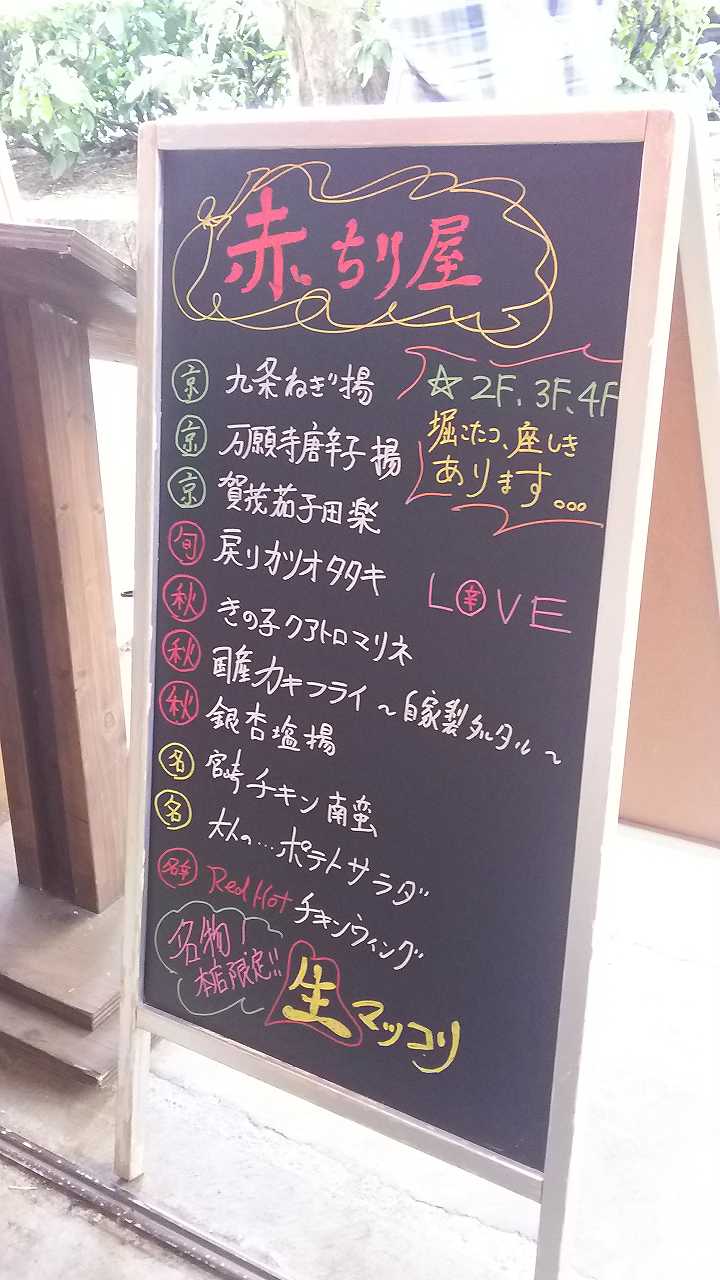 赤ちり屋
京 九条ねぎ揚
京 万願寺唐辛子揚
京 賀茂茄子田楽
旬 戻りカツオタタキ
秋 きの子クアトロマリネ
秋 国産カキフライ～自家製タルタル～
秋 銀杏塩揚
名 宮崎チキン南蛮
名 大人の…ポテトサラダ
名辛 Red Hot チキンウィング
☆2F、3F、4F
堀こたつ、座しき
あります...
L辛VE
名物！
本店限定!!
生マッコリ